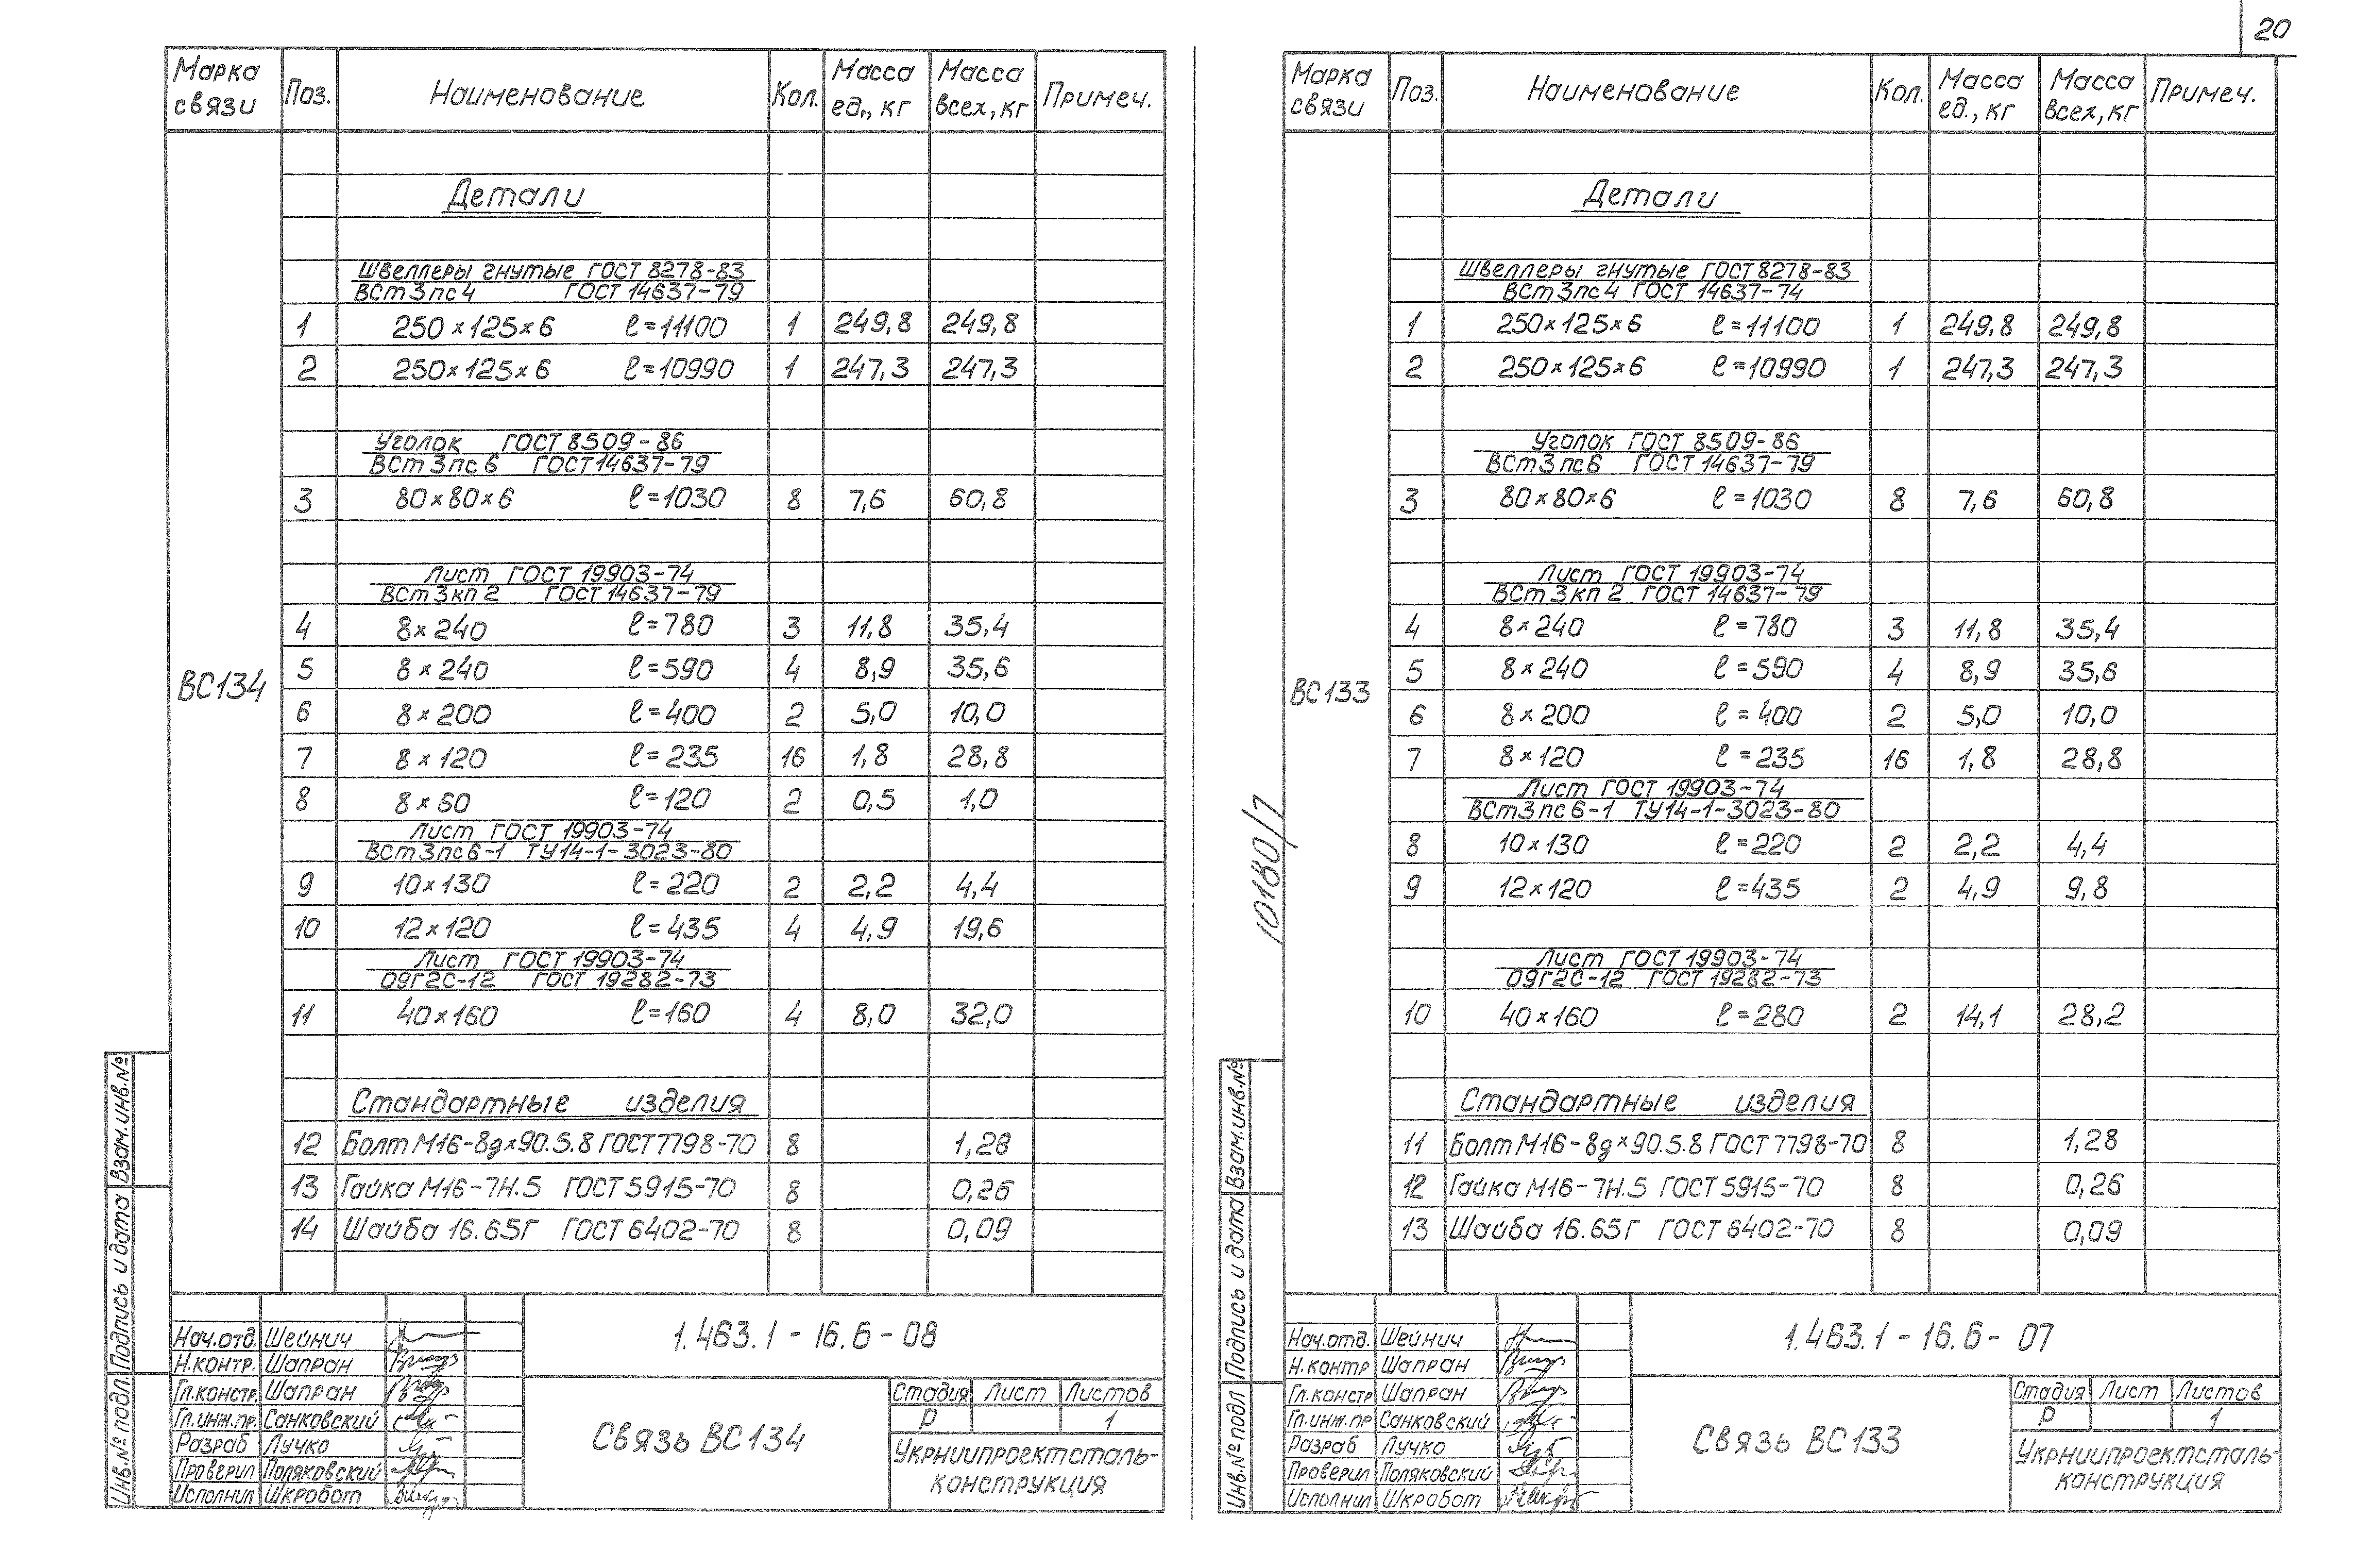 20
Марка связи Поз. Наименование Кол. Масса ед., кг Масса всех, кг Примеч.
Детали
Швеллеры гнутые ГОСТ 8278-83
ВСт3пс4 ГОСТ 14637-79
1 250×125×6 ℓ=11100 1 249,8 249,8
2 250×125×6 ℓ=10990 1 247,3 247,3
Уголок ГОСТ 8509-86
ВСт3пс6 ГОСТ 14637-79
3 80×80×6 ℓ=1030 8 7,6 60,8
Лист ГОСТ 19903-74
ВСт3кп2 ГОСТ 14637-79
4 8×240 ℓ=780 3 11,8 35,4
5 8×240 ℓ=590 4 8,9 35,6
ВС134
6 8×200 ℓ=400 2 5,0 10,0
7 8×120 ℓ=235 16 1,8 28,8
8 8×60 ℓ=120 2 0,5 1,0
Лист ГОСТ 19903-74
ВСт3пс6-1 ТУ14-1-3023-80
9 10×130 ℓ=220 2 2,2 4,4
10 12×120 ℓ=435 4 4,9 19,6
Лист ГОСТ 19903-74
09Г2С-12 ГОСТ 19282-73
11 40×160 ℓ=160 4 8,0 32,0
Стандартные изделия
12 Болт М16-8g×90.5.8 ГОСТ 7798-70 8 1,28
13 Гайка М16-7Н.5 ГОСТ 5915-70 8 0,26
14 Шайба 16.65Г ГОСТ 6402-70 8 0,09
Взам.инв.№
Подпись и дата
Инв.№ подл.
Нач.отд. Шейнич
Н.контр. Шапран
Гл.констр. Шапран
Гл.инж.пр. Санковский
Разраб Лучко
Проверил Поляковский
Исполнил Шкробот
1.463.1-16.6-08
Связь ВС134
Стадия Лист Листов
Р 1
Укрниипроектсталь-
конструкция
10180/7
Марка связи Поз. Наименование Кол. Масса ед., кг Масса всех, кг Примеч.
Детали
Швеллеры гнутые ГОСТ 8278-83
ВСт3пс4 ГОСТ 14637-74
1 250×125×6 ℓ=11100 1 249,8 249,8
2 250×125×6 ℓ=10990 1 247,3 247,3
Уголок ГОСТ 8509-86
ВСт3пс6 ГОСТ 14637-79
3 80×80×6 ℓ=1030 8 7,6 60,8
Лист ГОСТ 19903-74
ВСт3кп2 ГОСТ 14637-79
4 8×240 ℓ=780 3 11,8 35,4
5 8×240 ℓ=590 4 8,9 35,6
ВС133
6 8×200 ℓ=400 2 5,0 10,0
7 8×120 ℓ=235 16 1,8 28,8
Лист ГОСТ 19903-74
ВСт3пс6-1 ТУ14-1-3023-80
8 10×130 ℓ=220 2 2,2 4,4
9 12×120 ℓ=435 2 4,9 9,8
Лист ГОСТ 19903-74
09Г2С-12 ГОСТ 19282-73
10 40×160 ℓ=280 2 14,1 28,2
Стандартные изделия
11 Болт М16-8g×90.5.8 ГОСТ 7798-70 8 1,28
12 Гайка М16-7Н.5 ГОСТ 5915-70 8 0,26
13 Шайба 16.65Г ГОСТ 6402-70 8 0,09
Взам.инв.№
Подпись и дата
Инв.№ подл
Нач.отд. Шейнич
Н.контр Шапран
Гл.констр Шапран
Гл.инж.пр Санковский
Разраб Лучко
Проверил Поляковский
Исполнил Шкробот
1.463.1-16.6-07
Связь ВС133
Стадия Лист Листов
Р 1
Укрниипроектсталь-
конструкция